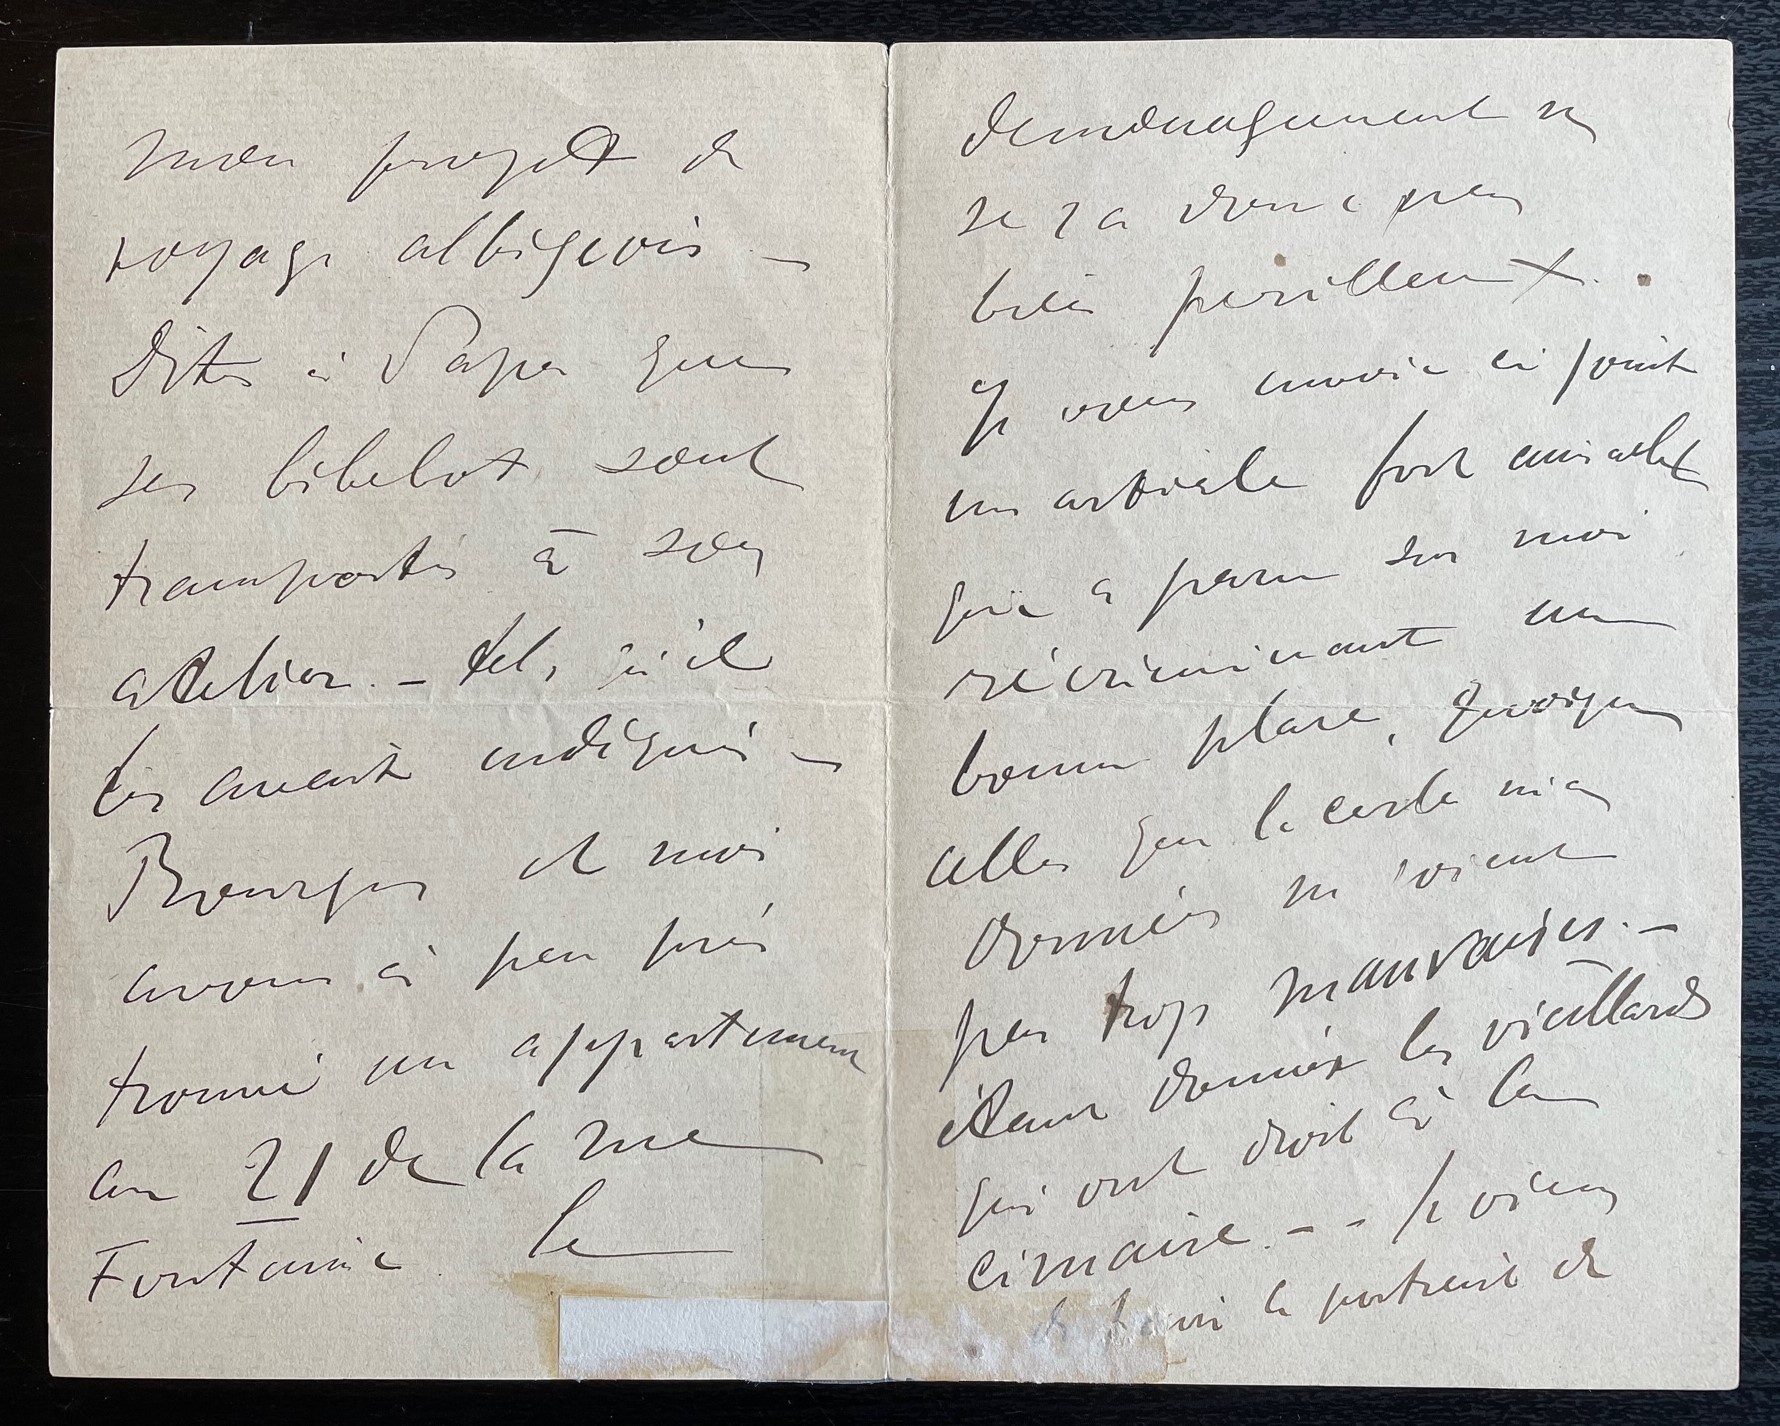 mon projet de
voyage albigeois —
Dites à Papa que
ses bibelots sont
transportés à son
atelier. — tels qu'il
les avait indiqués —
Bourges et moi
avons à peu près
trouvé un appartement
au 21 de la rue
Fontaine. le
déménagement ne
sera donc pas
bien périlleux.
Je vous envoie ci joint
un article fort aimable
qui a paru sur moi
récriminant une
bonne place, quoique
celles que le cercle m'a
données ne soient
pas trop mauvaises. —
étant donnés les vieillards
qui ont droit à la
cimaise. — - Je viens
de finir le portrait de